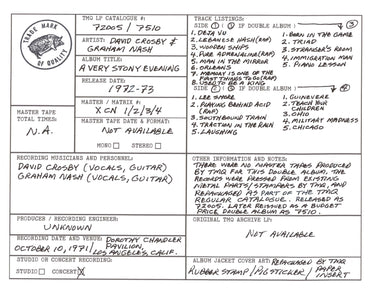 TRADE MARK
OF QUALITY
TMQ LP CATALOGUE #:
72005 / 7510
ARTIST: DAVID CROSBY &
GRAHAM NASH
ALBUM TITLE:
A VERY STONY EVENING
RELEASE DATE:
1972-73
MASTER TAPE
TOTAL TIMES:
N.A.
MASTER / MATRIX #:
XCN 1/2/3/4
MASTER TAPE DATE & FORMAT:
NOT AVAILABLE
MONO STEREO
TRACK LISTINGS:
SIDE ① & IF DOUBLE ALBUM: ③
1. DEJA VU
2. LEBANESE HASH (RAP)
3. WOODEN SHIPS
4. PURE ADRENALINE (RAP)
5. MAN IN THE MIRROR
6. ORLEANS
7. MEMORY IS ONE OF THE
FIRST THINGS TO GO (RAP)
8. USED TO BE A KING
1. BORN IN THE GAME
2. TRIAD
3. STRANGER'S ROOM
4. IMMIGRATION MAN
5. PIANO LESSON
SIDE ② & IF DOUBLE ALBUM: ④
1. LEE SHORE
2. PLAYING BEHIND ACID
(RAP)
3. SOUTHBOUND TRAIN
4. TRACTION IN THE RAIN
5. LAUGHING
1. GUINEVERE
2. TEACH YOUR
CHILDREN
3. OHIO
4. MILITARY MADNESS
5. CHICAGO
RECORDING MUSICIANS AND PERSONNEL:
DAVID CROSBY (VOCALS, GUITAR)
GRAHAM NASH (VOCALS, GUITAR)
OTHER INFORMATION AND NOTES:
THERE WERE NO MASTER TAPES PRODUCED
BY TMQ FOR THIS DOUBLE ALBUM, THE
RECORDS WERE PRESSED FROM EXISTING
METAL PARTS/STAMPERS BY TMQ, AND
REPACKAGED AS PART OF THE TMQ
REGULAR CATALOGUE. RELEASED AS
72005. LATER REISSUED AS A BUDGET
PRICE DOUBLE ALBUM AS 7510.
PRODUCER / RECORDING ENGINEER:
UNKNOWN
RECORDING DATE AND VENUE: DOROTHY CHANDLER
PAVILION,
OCTOBER 10, 1971 / LOS ANGELES, CALIF.
ORIGINAL TMQ ARCHIVE LP:
NOT AVAILABLE
STUDIO OR CONCERT RECORDING:
STUDIO CONCERT X
ALBUM JACKET COVER ART: REPACKAGED BY TMQ
RUBBER STAMP / PIG STICKER / PAPER
INSERT